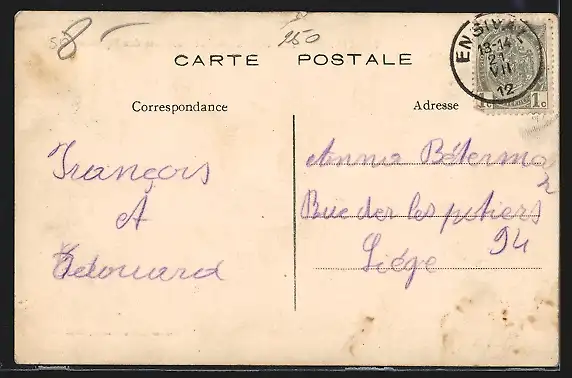 8 -
250
CARTE POSTALE
ENSIVAL
13-14
21
VII
12
1c 1c
Correspondance
Adresse
François
Et
Edouard
Anna Béterma
Rue der les potiers
94
Liége